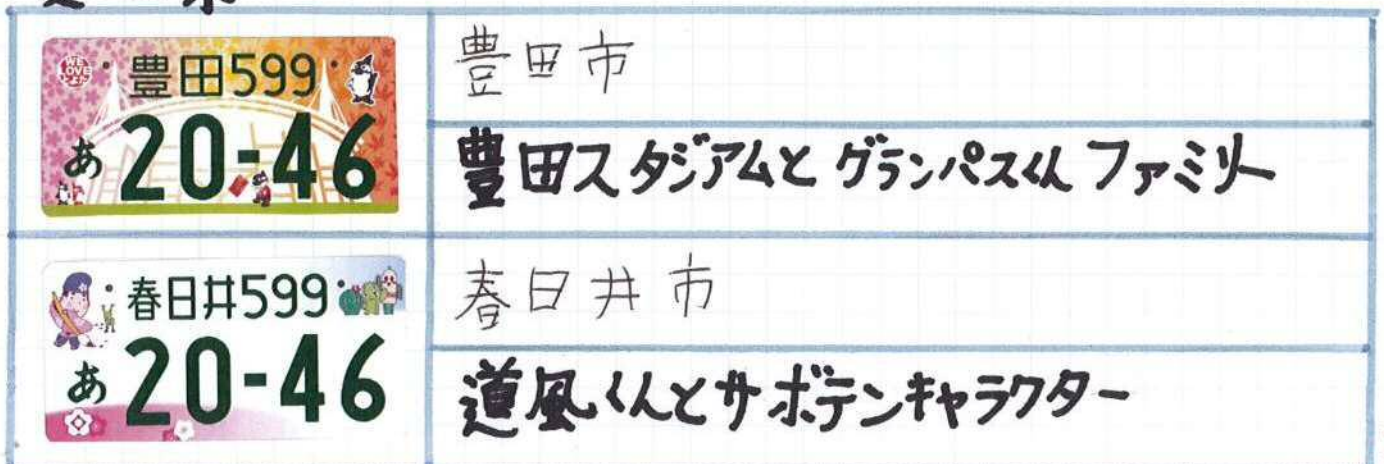 豊田599
あ 20-46
WE LOVE とよた
豊田市
豊田スタジアムとグランパスくんファミリー
春日井599
あ 20-46
春日井市
道風くんとサボテンキャラクター